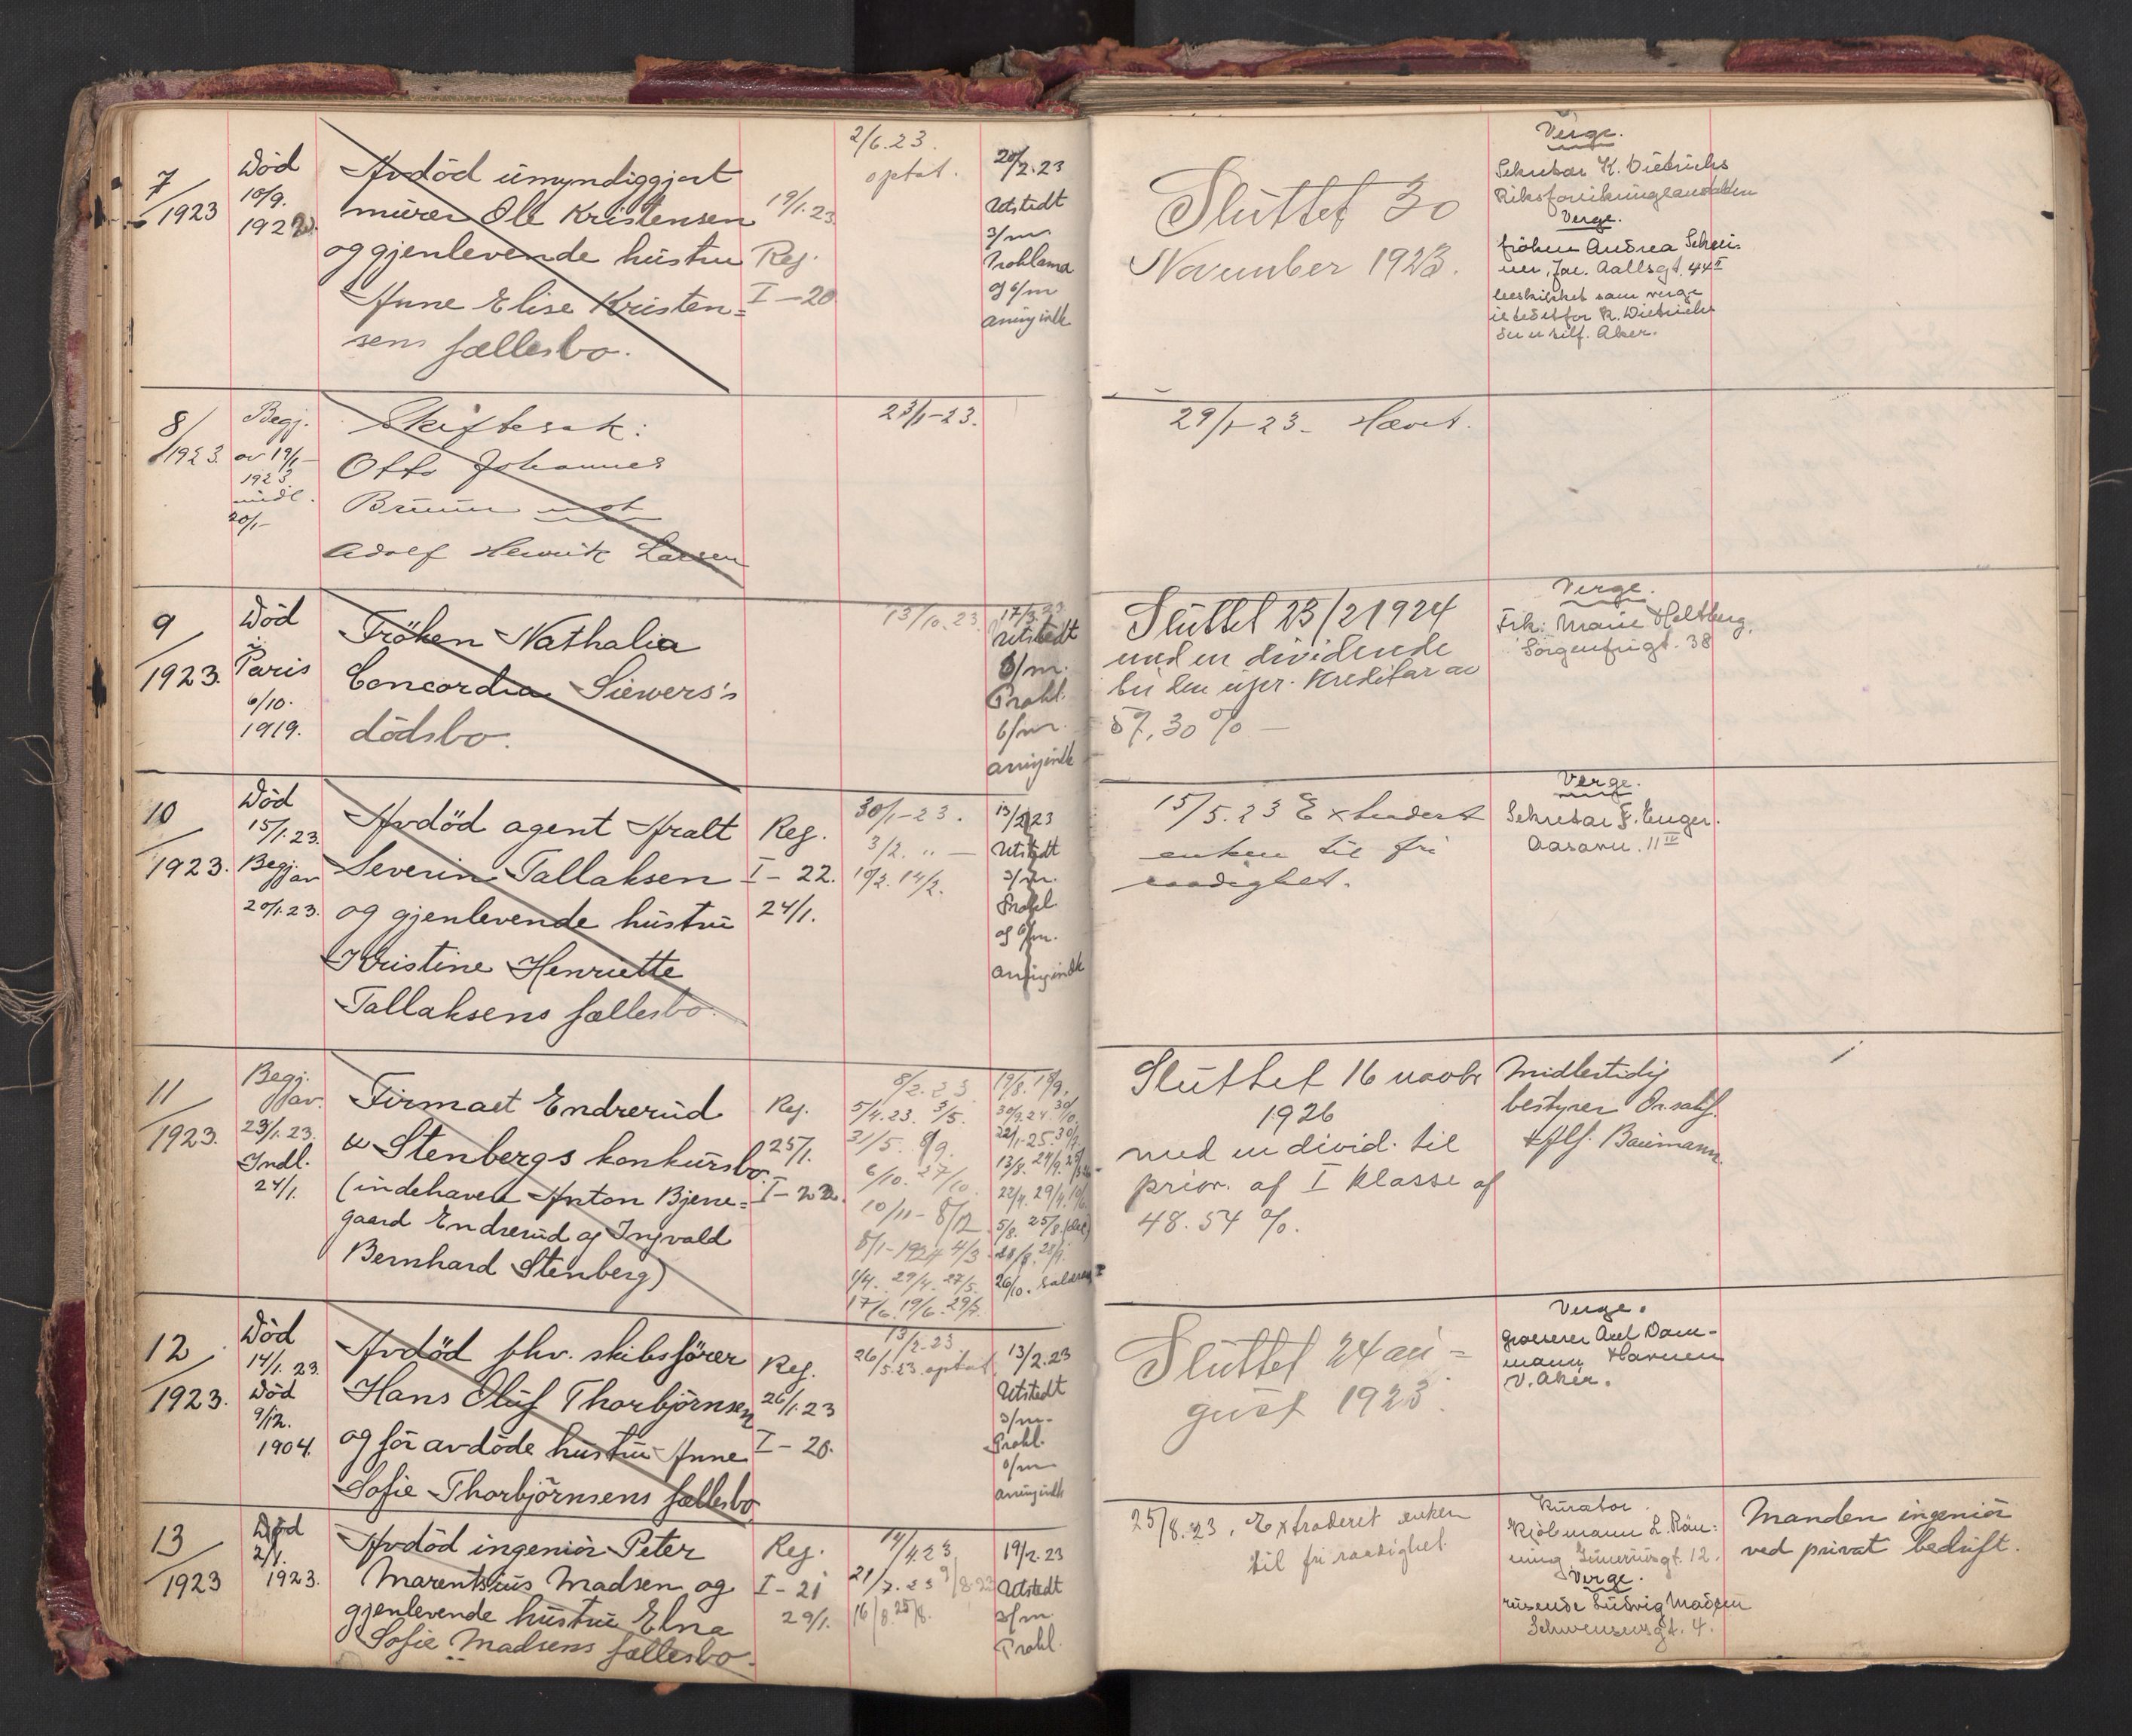 7/1923
Död
10/9.
1922.
Avdöd umyndiggjort
murer Ole Kristensen
og gjenlevende hustru
Anne Elise Kristen=
sens fællesbo.
19/1.23
Reg.
I – 20
2/6.23.
optat.
20/2.23
Utstedt
3/m.
Proklama
og 6/m
arvingindk
Sluttet 30
November 1923.
Verge.
Sekretær K. Dietrichs
Riksforsikringsanstalten
Verge.
fröken Andrea Schei-
Jac. Aallsgt. 44 II
beskikket som verge
istedetfor K. Dietrichs
Aker.
8/1923.
Begj.
av 19/1–
1923.
indl.
20/1–
Skiftesak:
Otto Johannes
Bruun mot
Adolf Henrik Larsen
23/1–23.
29/1–23– Hævet.
9/1923.
Död
i
Paris
6/10.
1919.
Fröken Nathalia
Concordia Siewers's
dödsbo.
13/10.23.
17/3.23
Utstedt
6/m.
Prokl.
6/m.
arvingindk
Sluttet 23/2 1924
med en dividende
til den upr. Kreditor av
57,30 % –
Verge.
Frk: Marie Holtberg.
Sorgenfrigt. 38
10/1923.
Död
15/1.23.
Begj. av
20/1.23.
Avdöd agent Aralt
Severin Tallaksen
og gjenlevende hustru
Kristine Henriette
Tallaksens fællesbo.
Reg.
I – 22.
24/1.
30/1–23.
3/2. " –
10/2. 14/2.
13/2.23
Utstedt
3/m.
Prokl.
og 6/m.
arvingindk
15/5.23 Extradert
enken til fri
raadighet.
Verge.
Sekretær F. Unger.
Aasavn. 11 IV
11/1923.
Begj.
av.
23/1.23.
Indl.
24/1.
Firmaet Endrerud
& Stenbergs konkursbo.
(indehavere Anton Bjerre=
gaard Endrerud og Ingvald
Bernhard Stenberg)
Reg.
25/1.
I – 22.
8/2.23.
5/4.23. 3/5.
31/5. 8/9.
6/10. 27/10.
10/11 – 8/12
8/1–1924 4/3
1/4. 29/4. 27/5.
17/6. 19/6. 29/7.
Sluttet 16 novbr
1926
med en divid. til
prior. af I Klasse af
48.54 %.
Midlertidig
bestyrer O.r.sakf.
Alf. Baumann.
12/1923.
Död
14/1.23.
Död
9/12.
1904.
Avdöd fhv. skibsförer
Hans Oluf Thorbjörnsen
og för avdöde hustru Anne
Sofie Thorbjörnsens fællesbo
Reg.
26/1.23
I – 20.
13/2.23.
26/5.23. optat
13/2.23
Utstedt
3/m–
Prokl.
6/m
arvingindk
Sluttet 24 au=
gust 1923.
Verge.
grosserer Axel Dam-
mann Havnen
V. Aker.
13/1923
Död
2/1.
1923.
Avdöd ingeniör Peter
Marentsius Madsen og
gjenlevende hustru Elna
Sofie Madsens fællesbo.
Reg.
I – 21
29/1.
14/4.23
21/7.23 9/8.23
16/8. 25/8.
19/2.23
Utstedt
3/m
Prokl.
25/8.23, Extraderet enken
til fri raadighet.
Kurator.
Kjöbmann L. Rön=
ning, Junersgt. 12.
Verge.
reisende Ludvig Madsen
Schwensensgt. 4.
Manden ingeniör
ved privat bedrift.